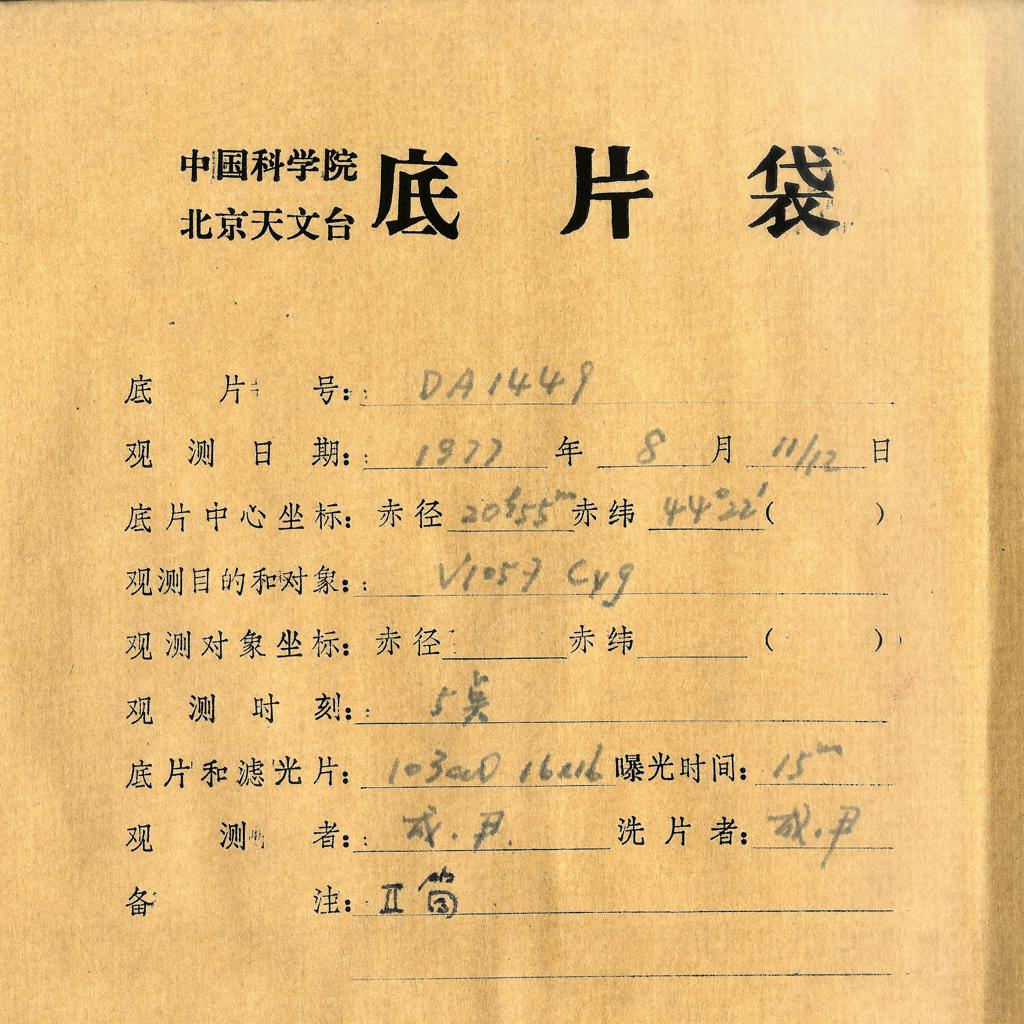 中国科学院
北京天文台
底片袋
底片号: DA1449
观测日期: 1977 年 8 月 11/12 日
底片中心坐标: 赤径 20h55m 赤纬 44°22′ ( )
观测目的和对象: V1057 Cyg
观测对象坐标: 赤径 赤纬 ( )
观测时刻: 5点
底片和滤光片: 103aO 16x16 曝光时间: 15m
观测者: 成.尹. 洗片者: 成.尹
备注: II 筒